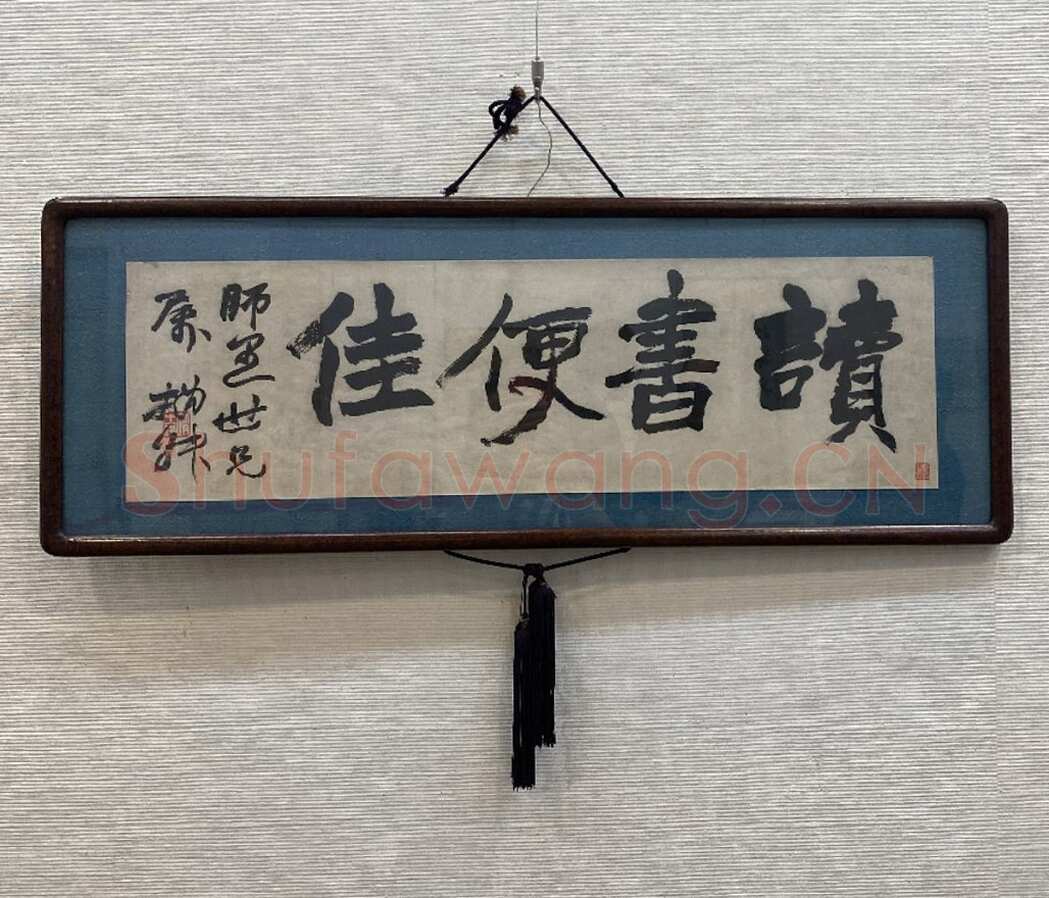 讀書便佳
師世兄
屬
Shufawang.CN